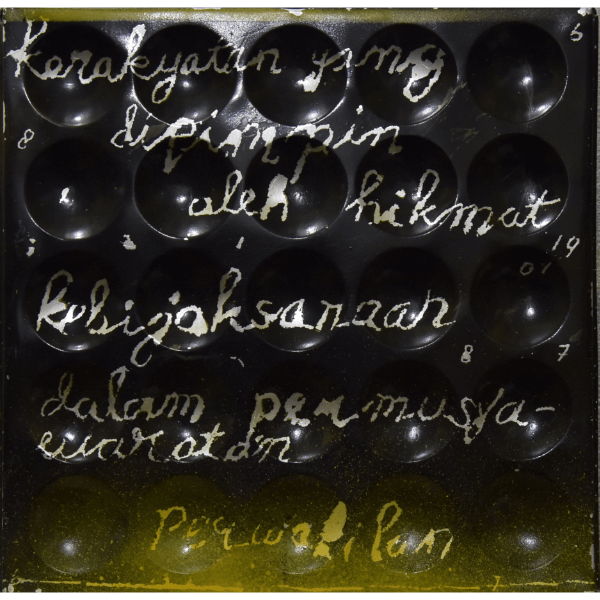 kerakyatan yang
6
8
dipimpin
oleh hikmat
19
01
kebijaksanaan
8 7
dalam permusya-
waratan
perwakilan